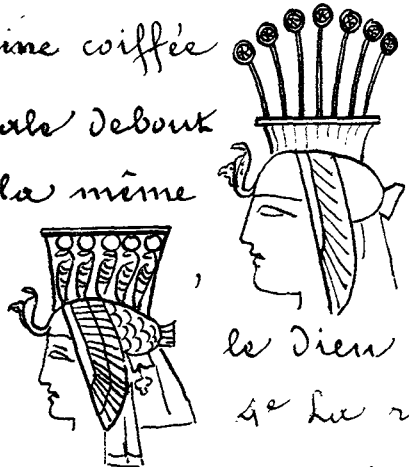 ine coiffée
ale debout
la même
,
le Dieu
4e La r